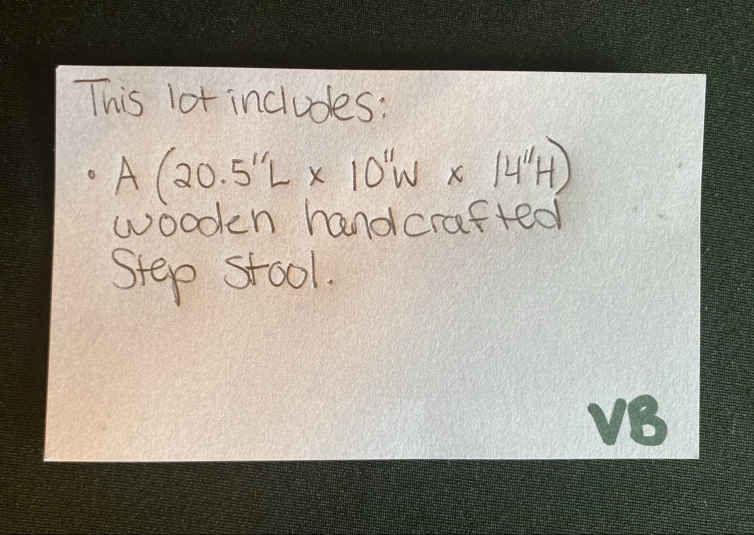 This lot includes:
• A (20.5"L x 10"W x 14"H)
wooden handcrafted
Step Stool.
VB